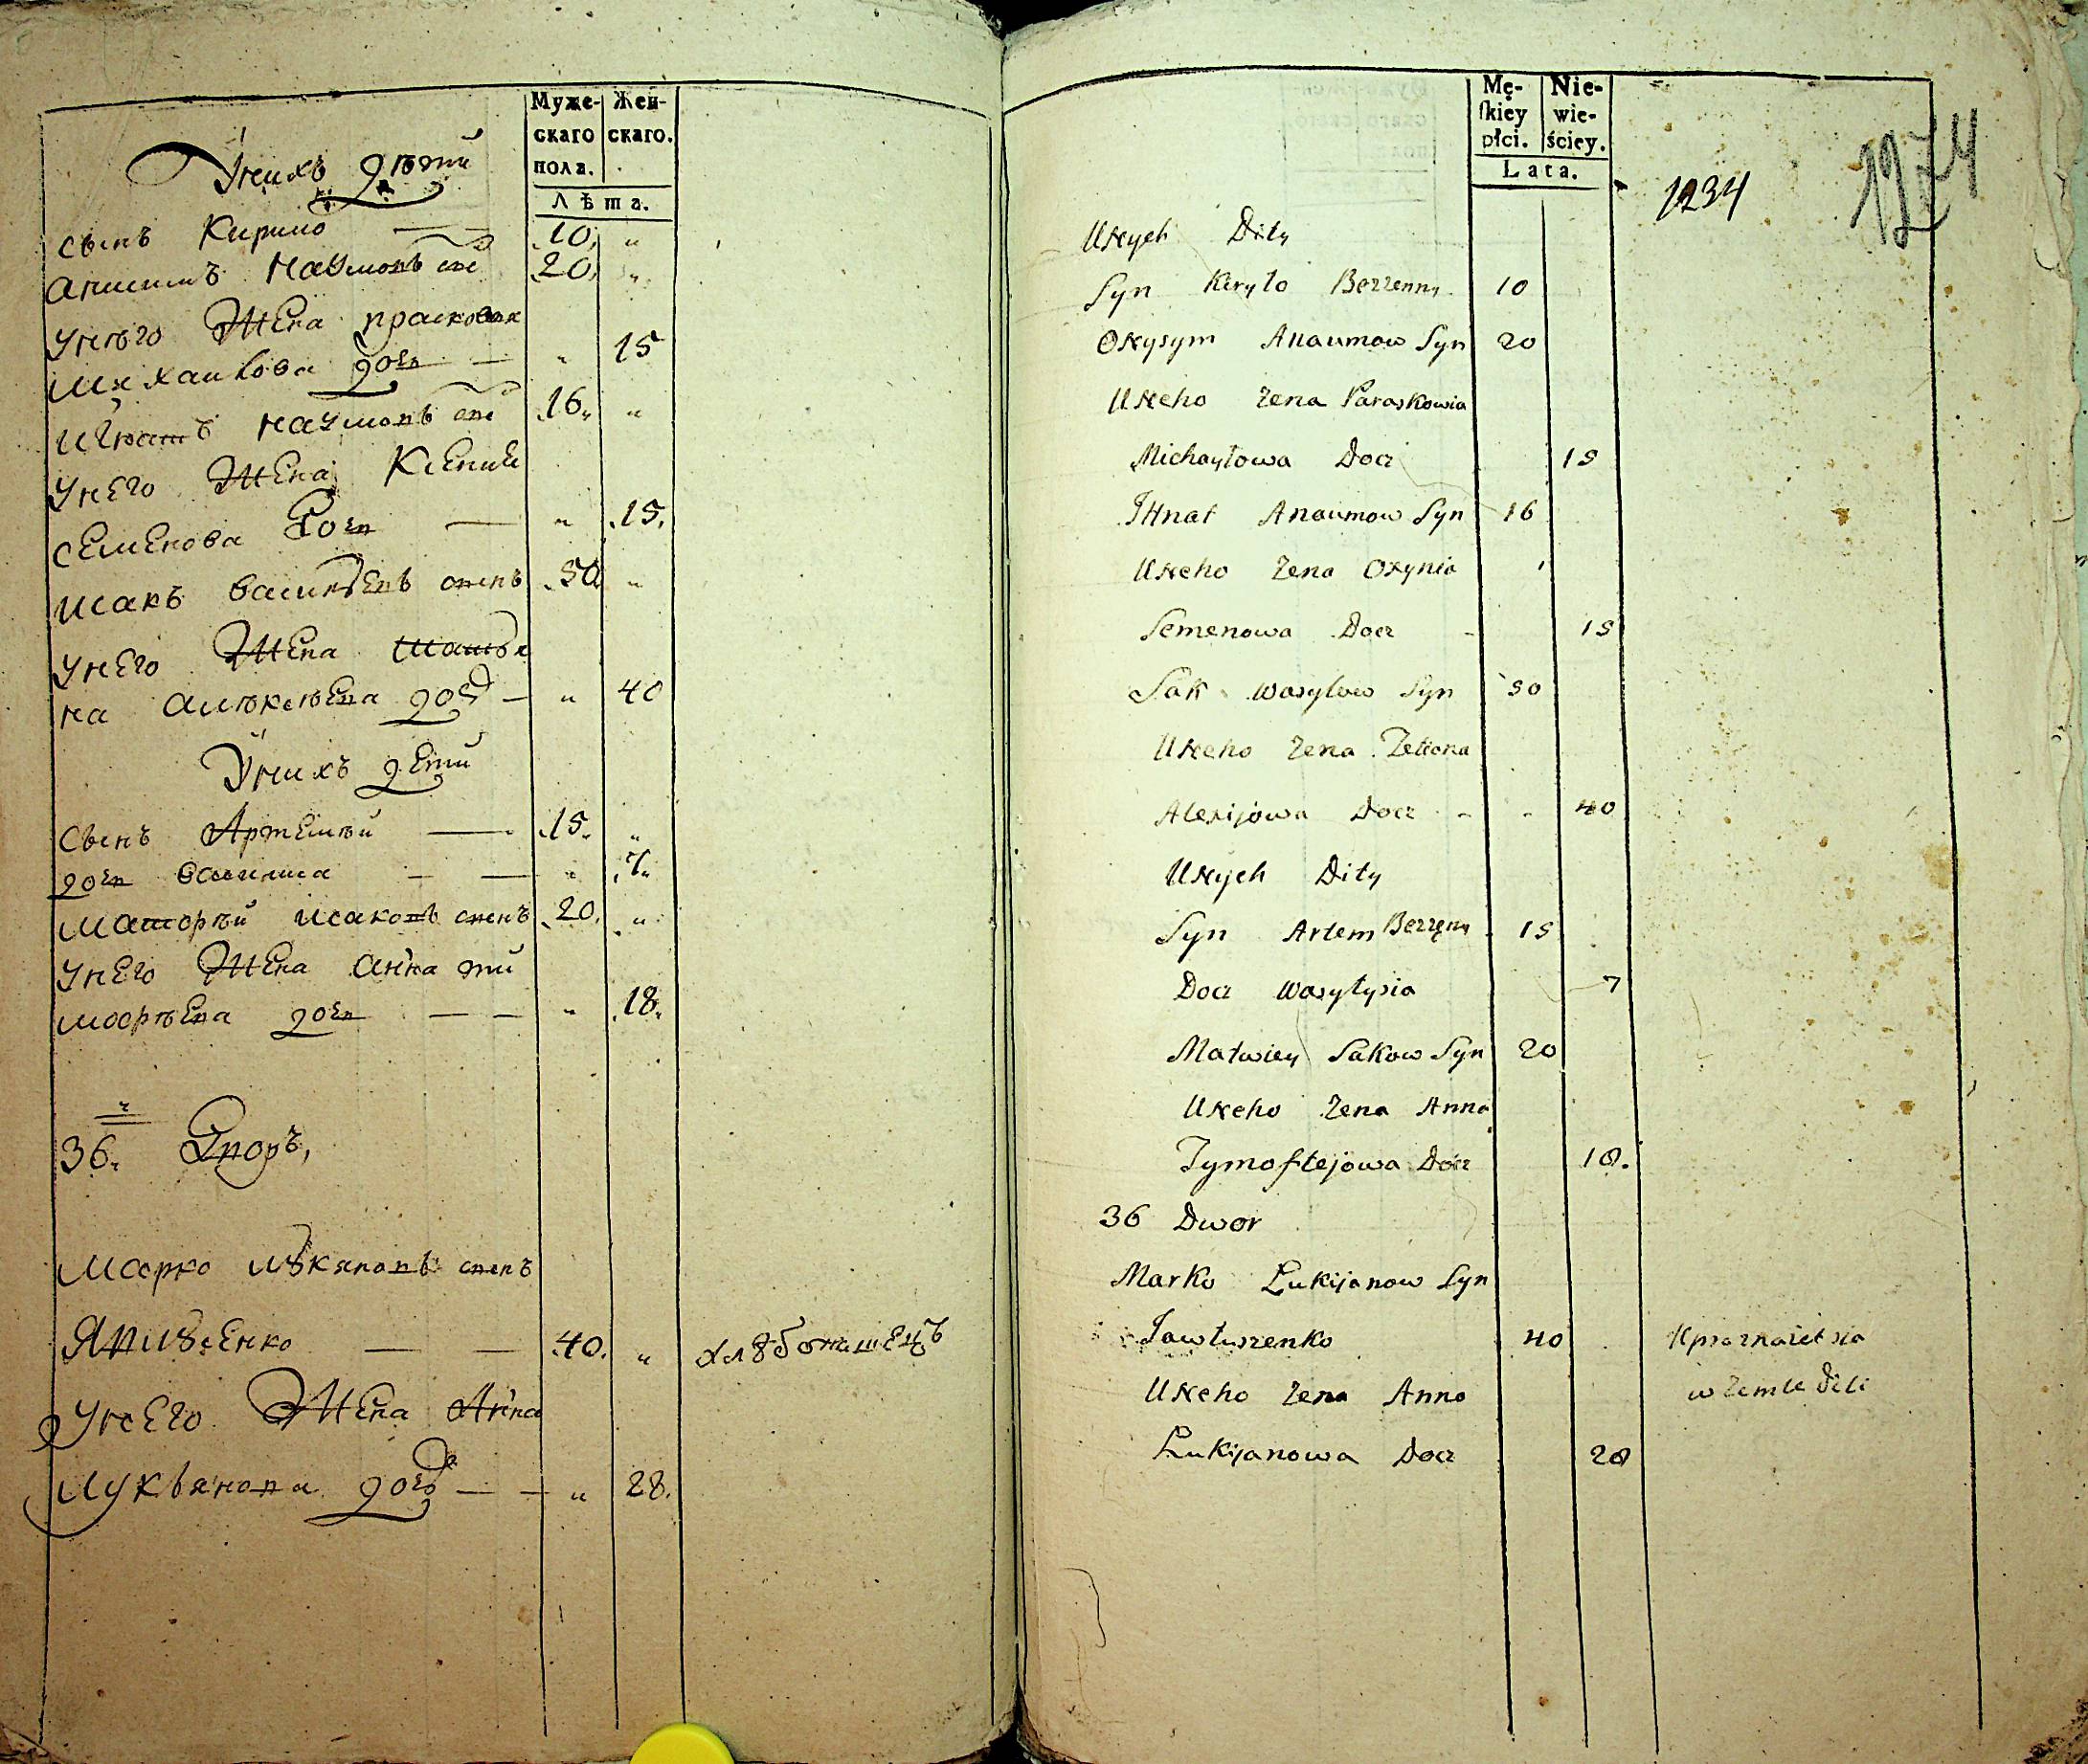 Муже-
скаго
пола.
Жен-
скаго.
Лѣта.
Унихъ дѣти
сынъ Кирило 10 "
Анисимъ Наумовъ сы 20 "
Унѣго Жена прасковя
Михайлова доч — " 15
Игнатъ Наумовъ сы 16 "
Унего Жена Ксения
Семенова доч — " 15.
Исакъ василѣвъ сынъ 50 "
Унего Жена Татья
на алѣксѣева доч — " 40
Унихъ дети
Сынъ Артемѣй — 15. "
доч василиса — — " 7.
Матфѣй исаковъ сынъ 20. "
Унего Жена Анна ти
мофѣева доч — — " 18.
36. Дворъ,
Марко лукяновъ сынъ
Явтушенко — — 40. " хлѣбопашецъ
Унего Жена Анна
Лукьянова доч — — " 28.
Mę-
skiey
płci.
Nie-
wie-
ściey.
Lata.
1234
1274
Unych Dity
Syn Keryło Bezzenny 10
Onysym Anaumow Syn 20
Uneho Zena Paraskowia
Michayłowa Docz 15
Ihnat Anaumow Syn 16
Uneho Zena Oxynia
Semenowa Docz - 15
Sak Wasylow Syn 50
Uneho Zena Tetiona
Alexijowa Docz - - 40
Unych Dity
Syn Artem Bezzenny 15
Docz Wasylysia 7
Matwiey Sakow Syn 20
Uneho Zena Anna
Tymoftejowa Docz 18.
36 Dwor
Marko Lukijanow Syn
Jawtuszenko 40 Uprazniaietsia
w zemledili
Uneho Zena Anna
Lukijanowa Docz 28